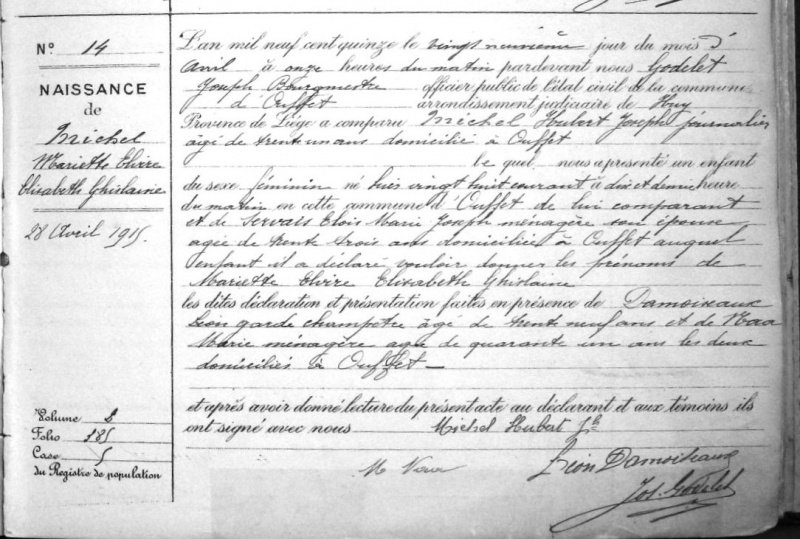 N° 14
NAISSANCE
de
Michel
Mariette Elvire
Elisabeth Ghislaine
28 Avril 1915.
Volume 2
Folio 285
Case 5
du Registre de population
L'an mil neuf cent quinze le vingt neuvième jour du mois d'
avril à onze heures du matin pardevant nous Godelet
Joseph Bourgmestre officier public de l'état civil de la commune
d'Ouffet arrondissement judiciaire de Huy
Province de Liége a comparu Michel Hubert Joseph journalier
agé de trente un ans domicilié à Ouffet
le quel nous a présenté un enfant
du sexe féminin né hier vingt huit courant à dix et demie heure
du matin en cette commune d'Ouffet de lui comparant
et de Servais Elois Marie Joseph ménagère son épouse
agée de trente trois ans domiciliée à Ouffet auquel
enfant il a déclaré vouloir donner les prénoms de
Mariette Elvire Elisabeth Ghislaine
les dites déclaration et présentation faites en présence de Damoiseaux
Léon garde champêtre âgé de trente neuf ans et de
Marie ménagère agée de quarante un ans les deux
domiciliés à Ouffet
et après avoir donné lecture du présent acte au déclarant et aux témoins ils
ont signé avec nous Michel Hubert Jh
M
Léon Damoiseaux
Jos. Godelet